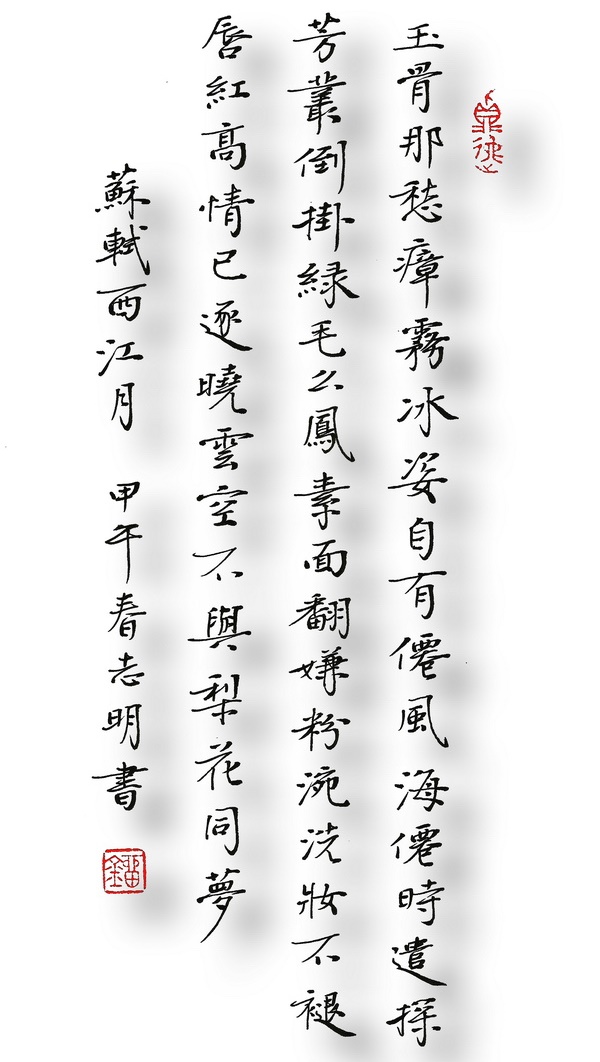 玉骨那愁瘴霧冰姿自有僊風海僊時遣探
芳叢倒掛緑毛幺鳳素面翻嫌粉涴洗妝不褪
唇紅高情已逐曉雲空不與梨花同夢
蘇軾西江月 甲午春志明書